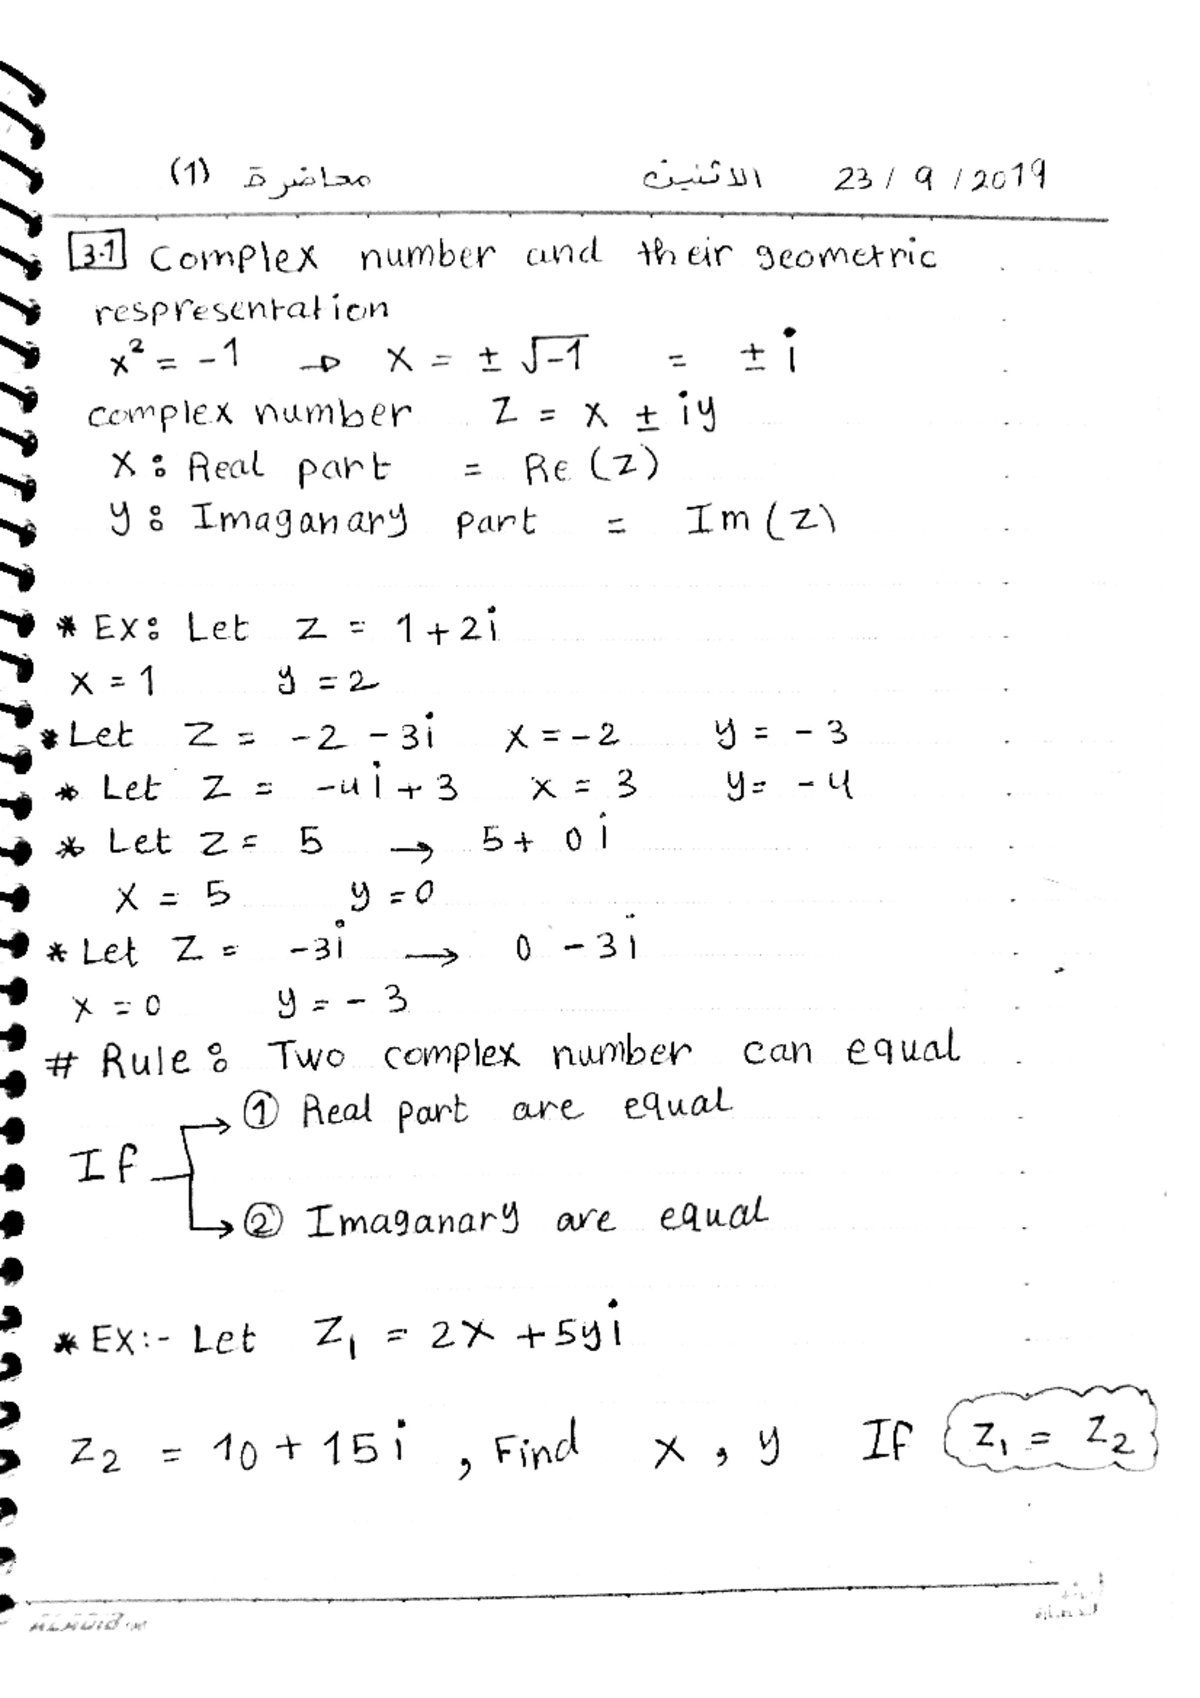 محاضرة (1) الاثنين 23/9/2019
3.1 Complex number and their geometric
respresentation
x² = -1 → x = ± √-1 = ± i
complex number Z = x ± iy
x: Real part = Re (Z)
y: Imaganary part = Im (Z)
* Ex: Let Z = 1+2i
x = 1 y = 2
* Let Z = -2 - 3i x = -2 y = - 3
* Let Z = -4i + 3 x = 3 y = - 4
* Let Z = 5 → 5 + 0i
x = 5 y = 0
* Let Z = -3i → 0 - 3i
x = 0 y = - 3
# Rule: Two complex number can equal
① Real part are equal
If
② Imaganary are equal
* EX:- Let Z₁ = 2x + 5yi
Z₂ = 10 + 15i , Find x , y If Z₁ = Z₂